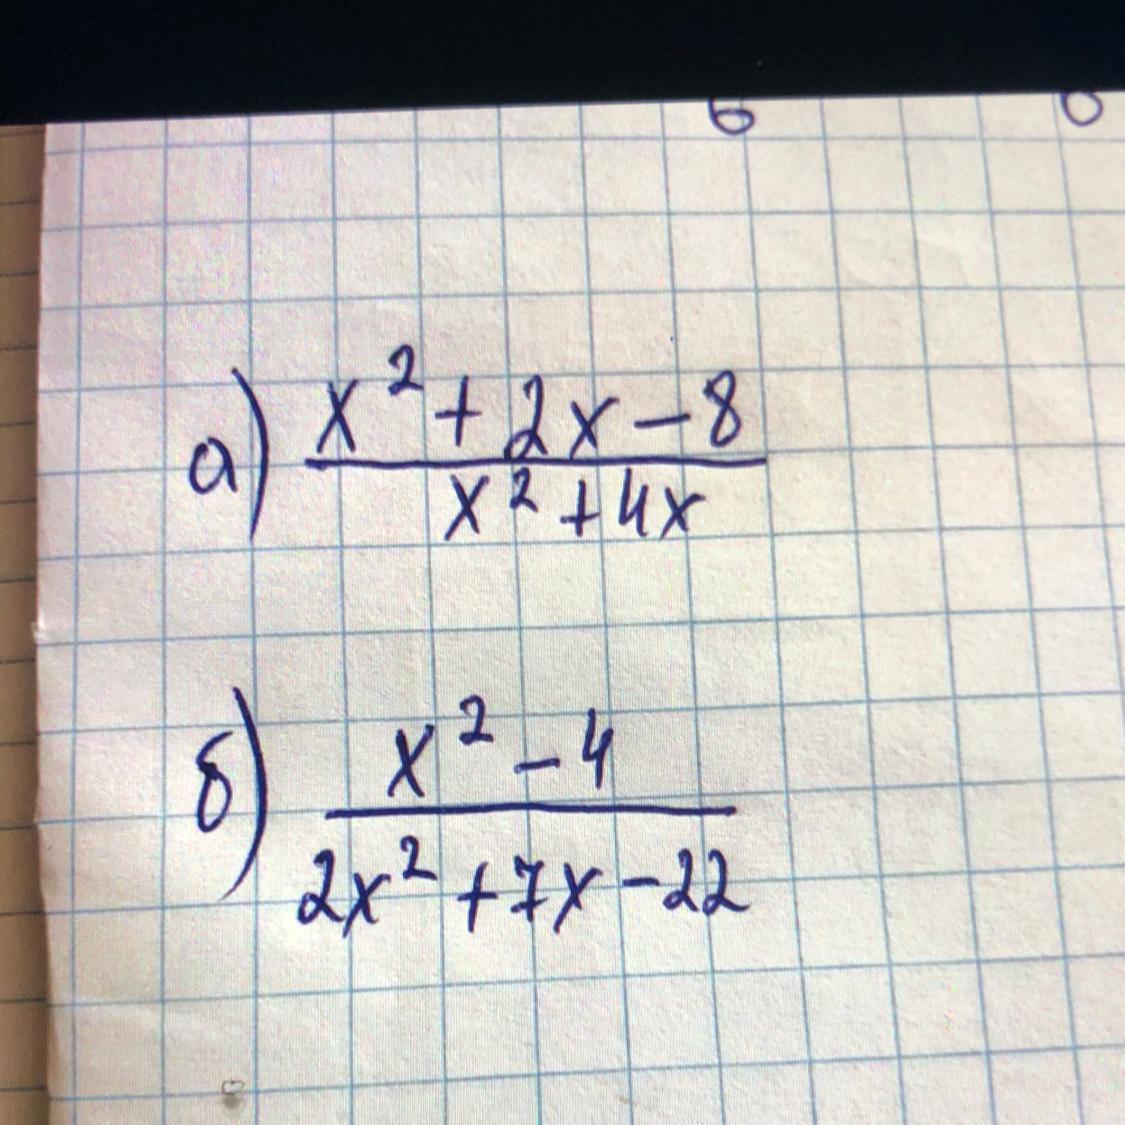 а) x² + 2x - 8
x² + 4x
б) x² - 4
2x² + 7x - 22